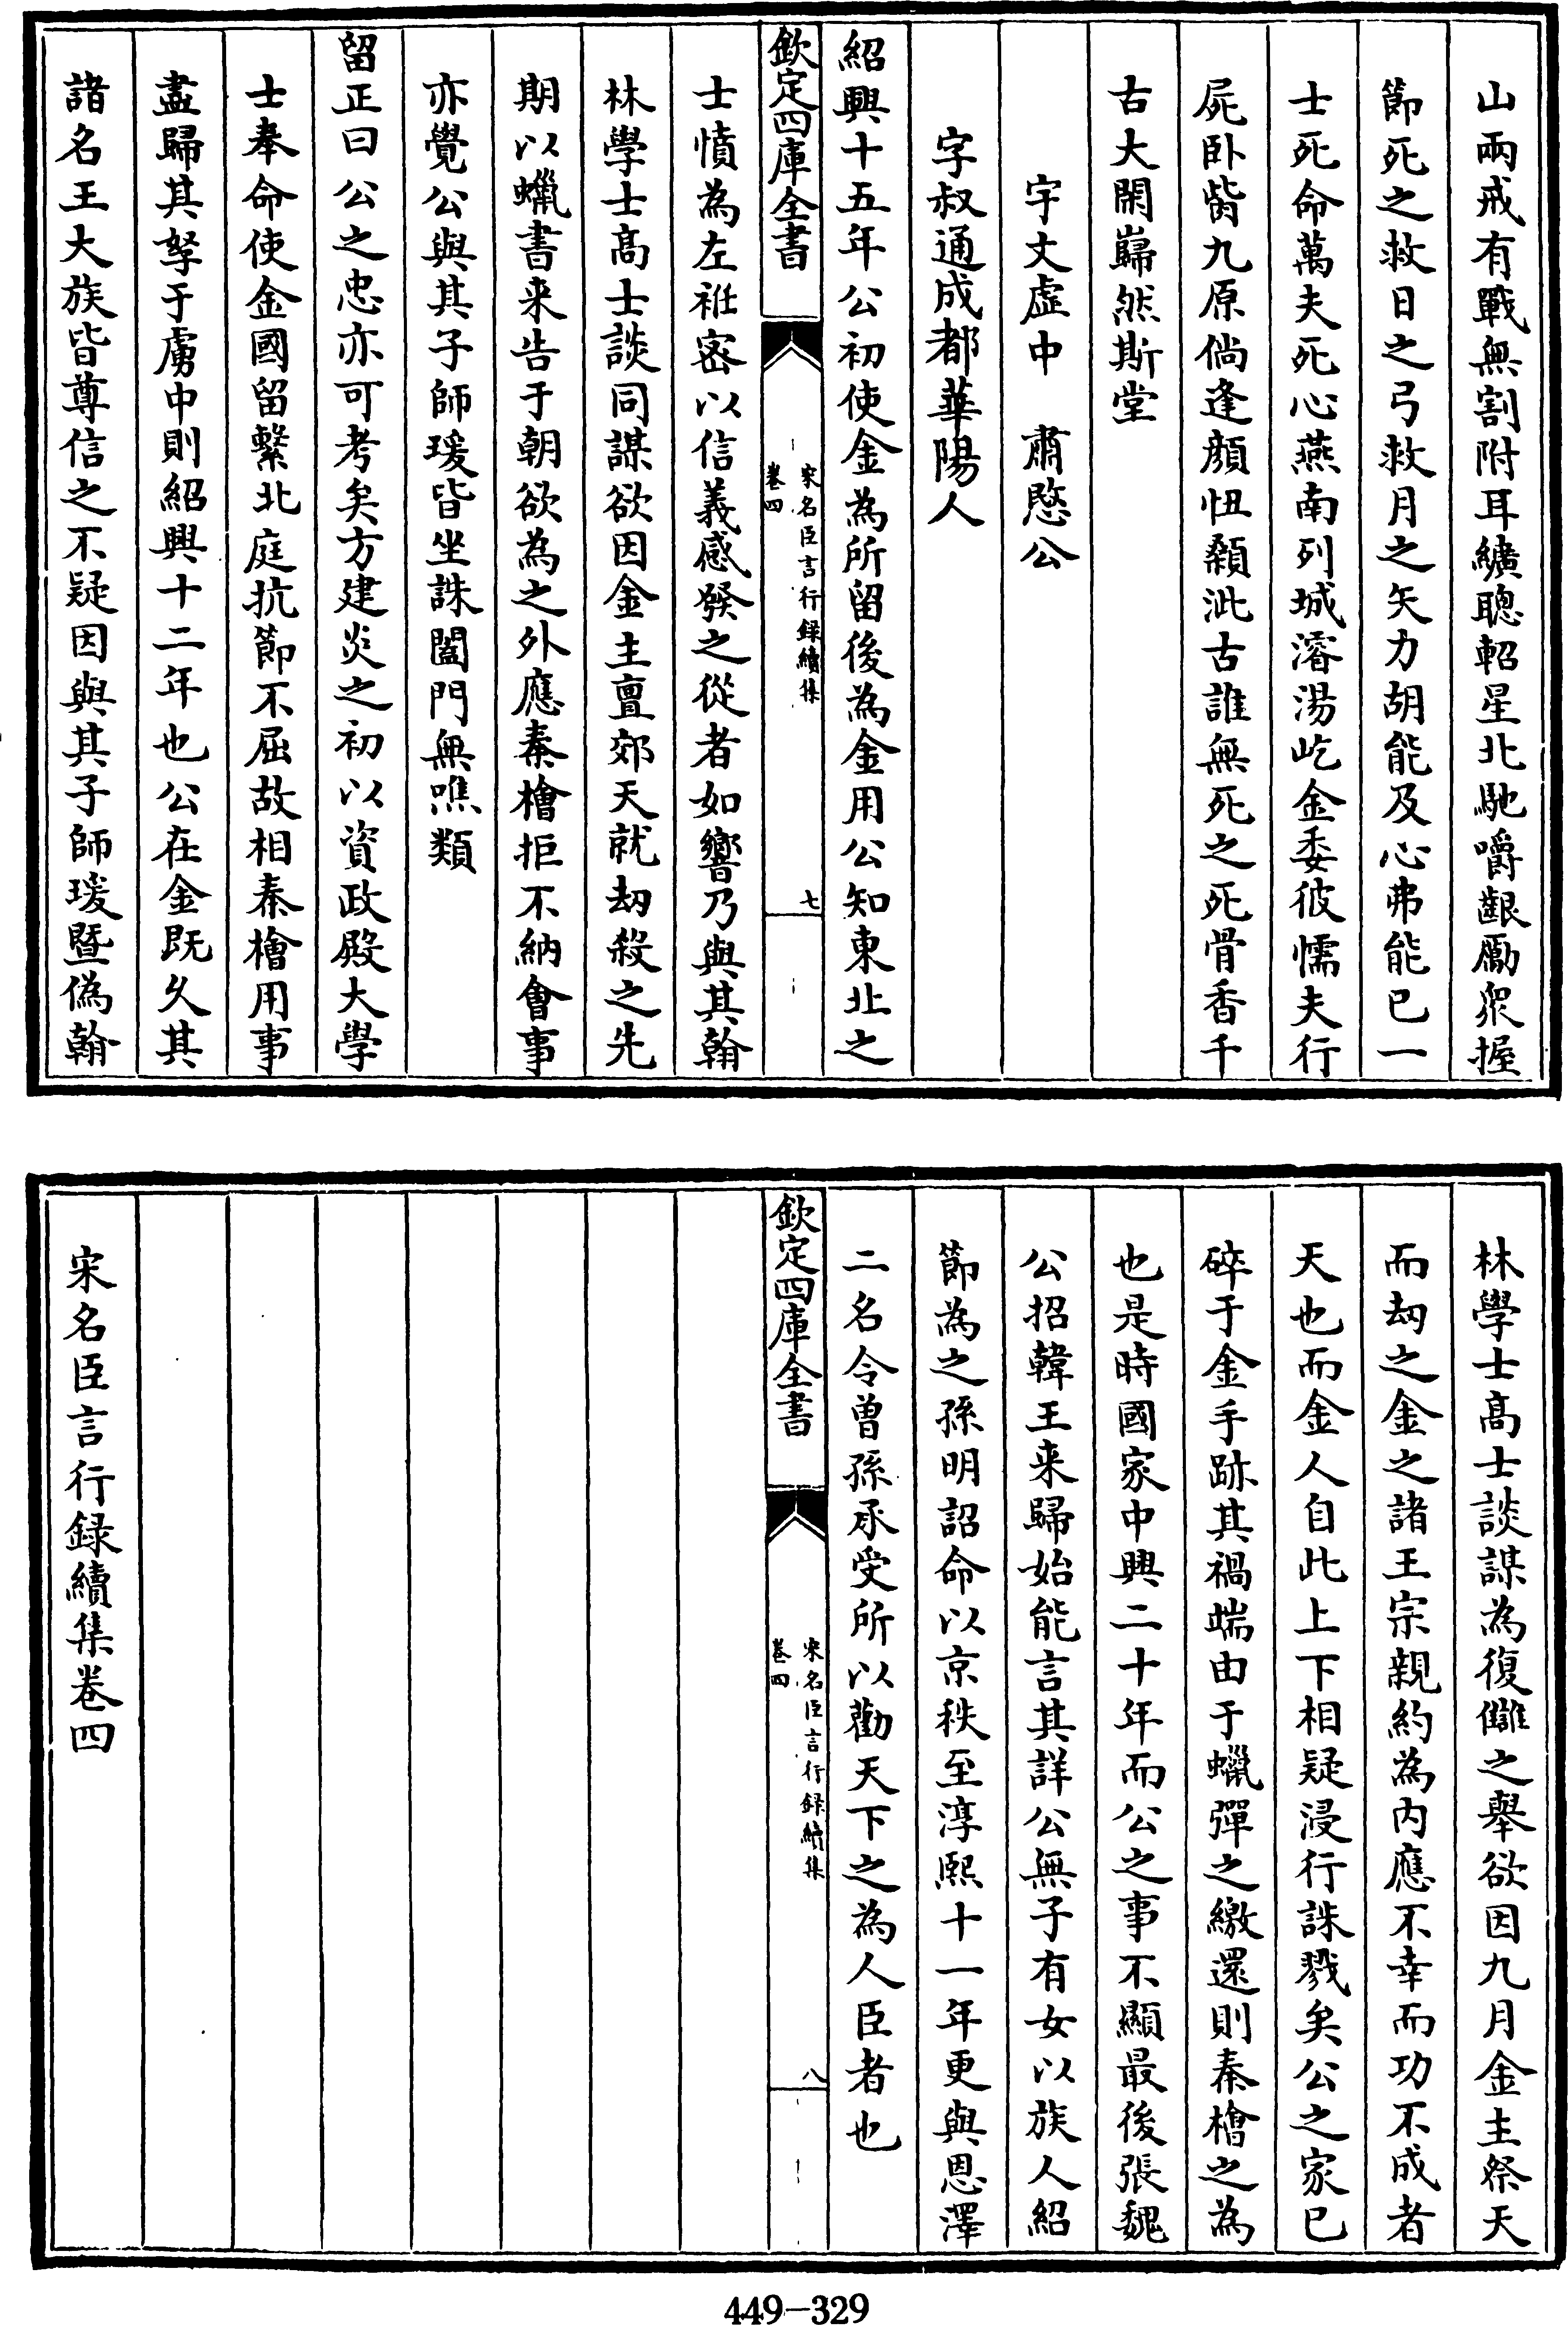 山兩戒有戰無割附耳纊聰軺星北馳嚼齦勵衆握
節死之救日之弓救月之矢力胡能及心弗能已一
士死命萬夫死心燕南列城濬湯屹金委彼懦夫行
屍卧胔九原倘逢顔忸顙泚古誰無死之死骨香千
古大閑巋然斯堂
宇文虛中　肅愍公
字叔通成都華陽人
紹興十五年公初使金為所留後為金用公知東北之
欽定四庫全書
宋名臣言行録續集
卷四
七
士憤為左袵密以信義感發之從者如響乃與其翰
林學士髙士談同謀欲因金主亶郊天就刼殺之先
期以蠟書来告于朝欲為之外應秦檜拒不納會事
亦覺公與其子師瑗皆坐誅闔門無噍類
留正曰公之忠亦可考矣方建炎之初以資政殿大學
士奉命使金國留繫北庭抗節不屈故相秦檜用事
盡歸其孥于虜中則紹興十二年也公在金既久其
諸名王大族皆尊信之不疑因與其子師瑗暨偽翰
林學士髙士談謀為復讎之舉欲因九月金主祭天
而刼之金之諸王宗親約為内應不幸而功不成者
天也而金人自此上下相疑浸行誅戮矣公之家已
碎于金手跡其禍端由于蠟彈之繳還則秦檜之為
也是時國家中興二十年而公之事不顯最後張魏
公招韓王来歸始能言其詳公無子有女以族人紹
節為之孫明詔命以京秩至淳熙十一年更與恩澤
二名令曽孫承受所以勸天下之為人臣者也
欽定四庫全書
宋名臣言行録續集
卷四
八
宋名臣言行録續集卷四
449-329